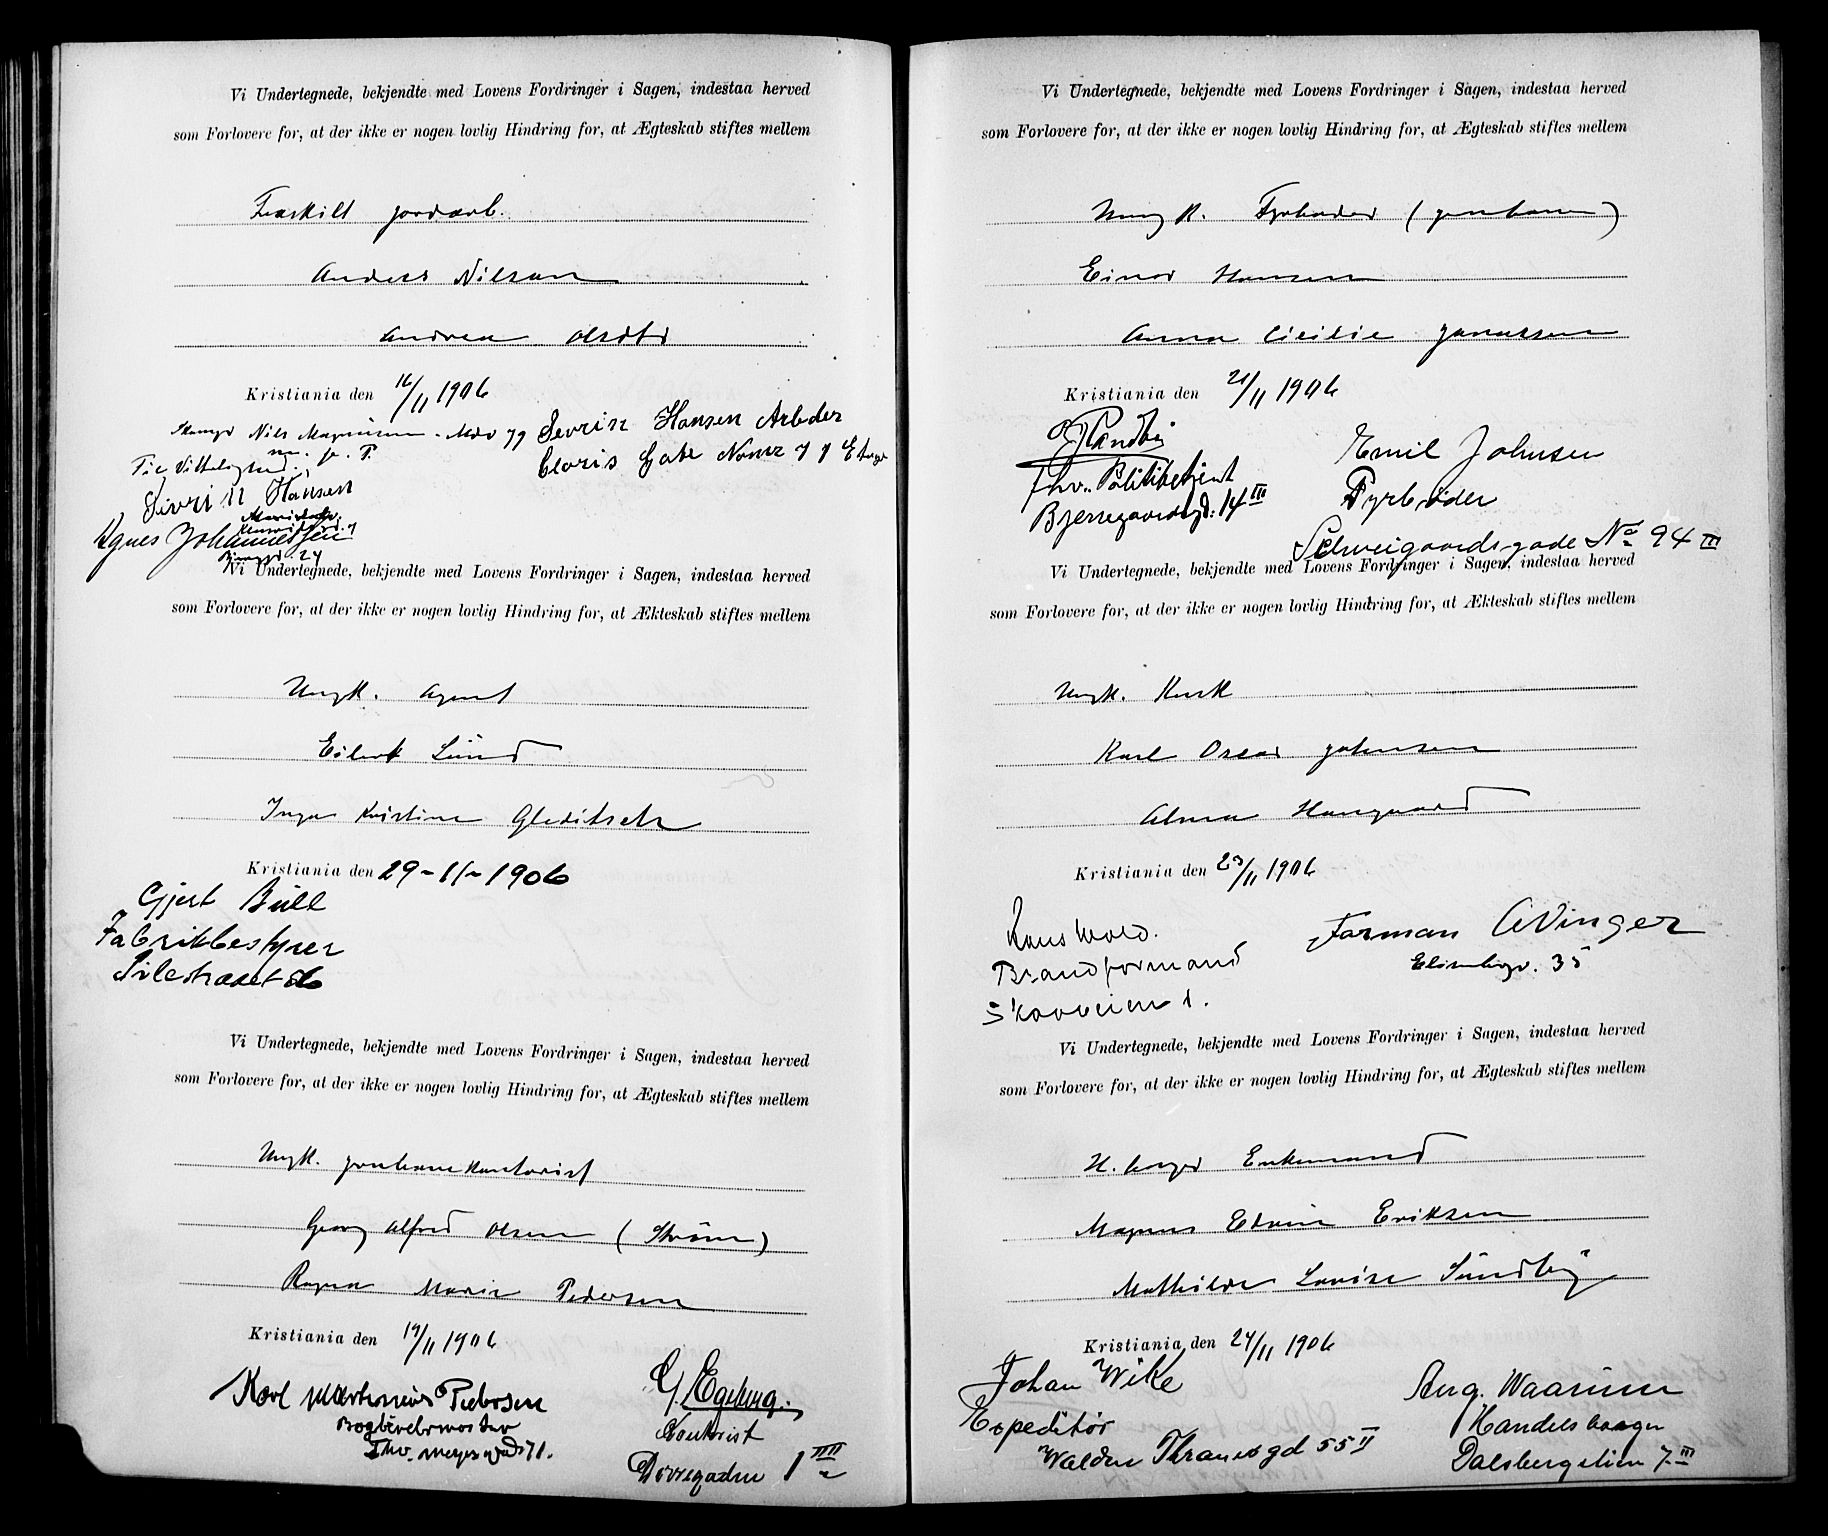 Vi Undertegnede, bekjendte med Lovens Fordringer i Sagen, indestaa herved
som Forlovere for, at der ikke er nogen lovlig Hindring for, at Ægteskab stiftes mellem
Fraskilt jordarb.
Anders Nilsen
Andrea Olsdtr
Kristiania den 16/11 1906
Nils Magnussen
m. p. P.
Sevrin Hansen Arbeder
Sivrin Hansen
Agnes Johannessen
Vi Undertegnede, bekjendte med Lovens Fordringer i Sagen, indestaa herved
som Forlovere for, at der ikke er nogen lovlig Hindring for, at Ækteskab stiftes mellem
Ungk. Agent
Eilert Lund
Inga Kristine Gleditsch
Kristiania den 29-11-1906
Gjert Bull
Fabrikbestyrer
Pilestrædet
Vi Undertegnede, bekjendte med Lovens Fordringer i Sagen, indestaa herved
som Forlovere for, at der ikke er nogen lovlig Hindring for, at Ægteskab stiftes mellem
Ungk. jernbanekontorist
Georg Alfred Olsen (Strøm)
Ragna Marie Pedersen
Kristiania den 19/11 1906
Karl Martinius Pedersen
Thv. Meyersgade 71.
G. Egeberg.
Kontorist
Dovregaden 1 III
Vi Undertegnede, bekjendte med Lovens Fordringer i Sagen, indestaa herved
som Forlovere for, at der ikke er nogen lovlig Hindring for, at Ægteskab stiftes mellem
Ungk. Fyrbøder (jernbanen)
Einar Hansen
Anna Cicilie Jonassen
Kristiania den 21/11 1906
fhv. Politibetjent
Bjerregaardsgd: 14 III
Emil Johnsen
Fyrbøder
Schweigaardsgade No 94 III
Vi Undertegnede, bekjendte med Lovens Fordringer i Sagen, indestaa herved
som Forlovere for, at der ikke er nogen lovlig Hindring for, at Ækteskab stiftes mellem
Ungk. Kusk
Karl Oscar Johnsen
Alma Haugaard
Kristiania den 23/11 1906
Hans Wold.
Brandformand
Skovveien 1.
Forman Winger
35
Vi Undertegnede, bekjendte med Lovens Fordringer i Sagen, indestaa herved
som Forlovere for, at der ikke er nogen lovlig Hindring for, at Ægteskab stiftes mellem
Enkemand
Magnus Edvin Eriksen
Mathilde Lovise Sundby
Kristiania den 24/11 1906
Johan Wike
Expeditør
Waldm Thranesgd 55 II
Aug. Waarum
Handelsborger
Dalsbergstien 7 III